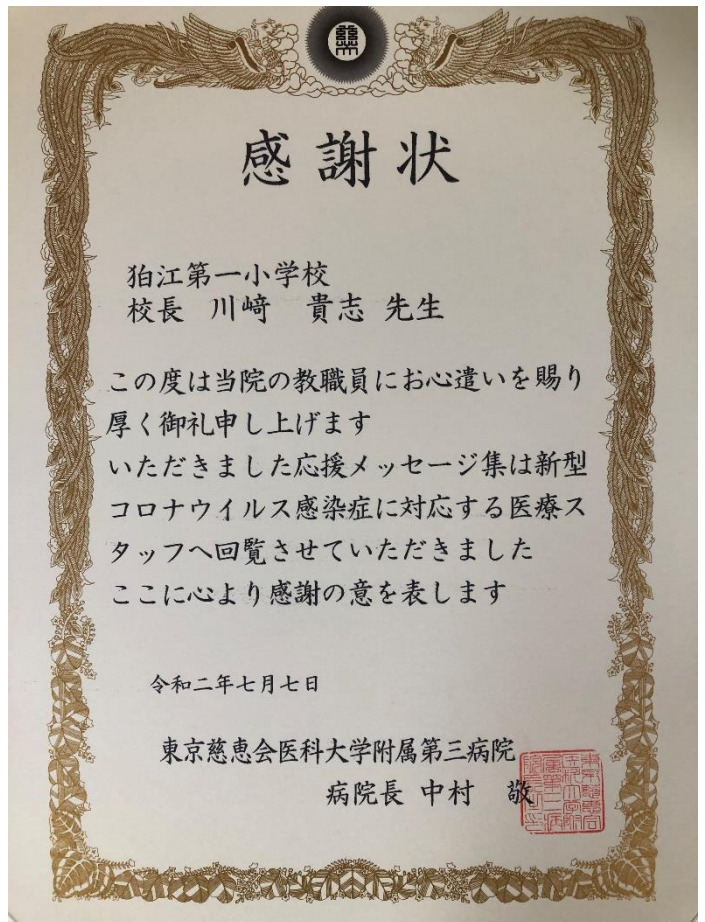 感謝状
狛江第一小学校
校長 川﨑 貴志 先生
この度は当院の教職員にお心遣いを賜り
厚く御礼申し上げます
いただきました応援メッセージ集は新型
コロナウイルス感染症に対応する医療ス
タッフへ回覧させていただきました
ここに心より感謝の意を表します
令和二年七月七日
東京慈恵会医科大学附属第三病院
病院長 中村 敬